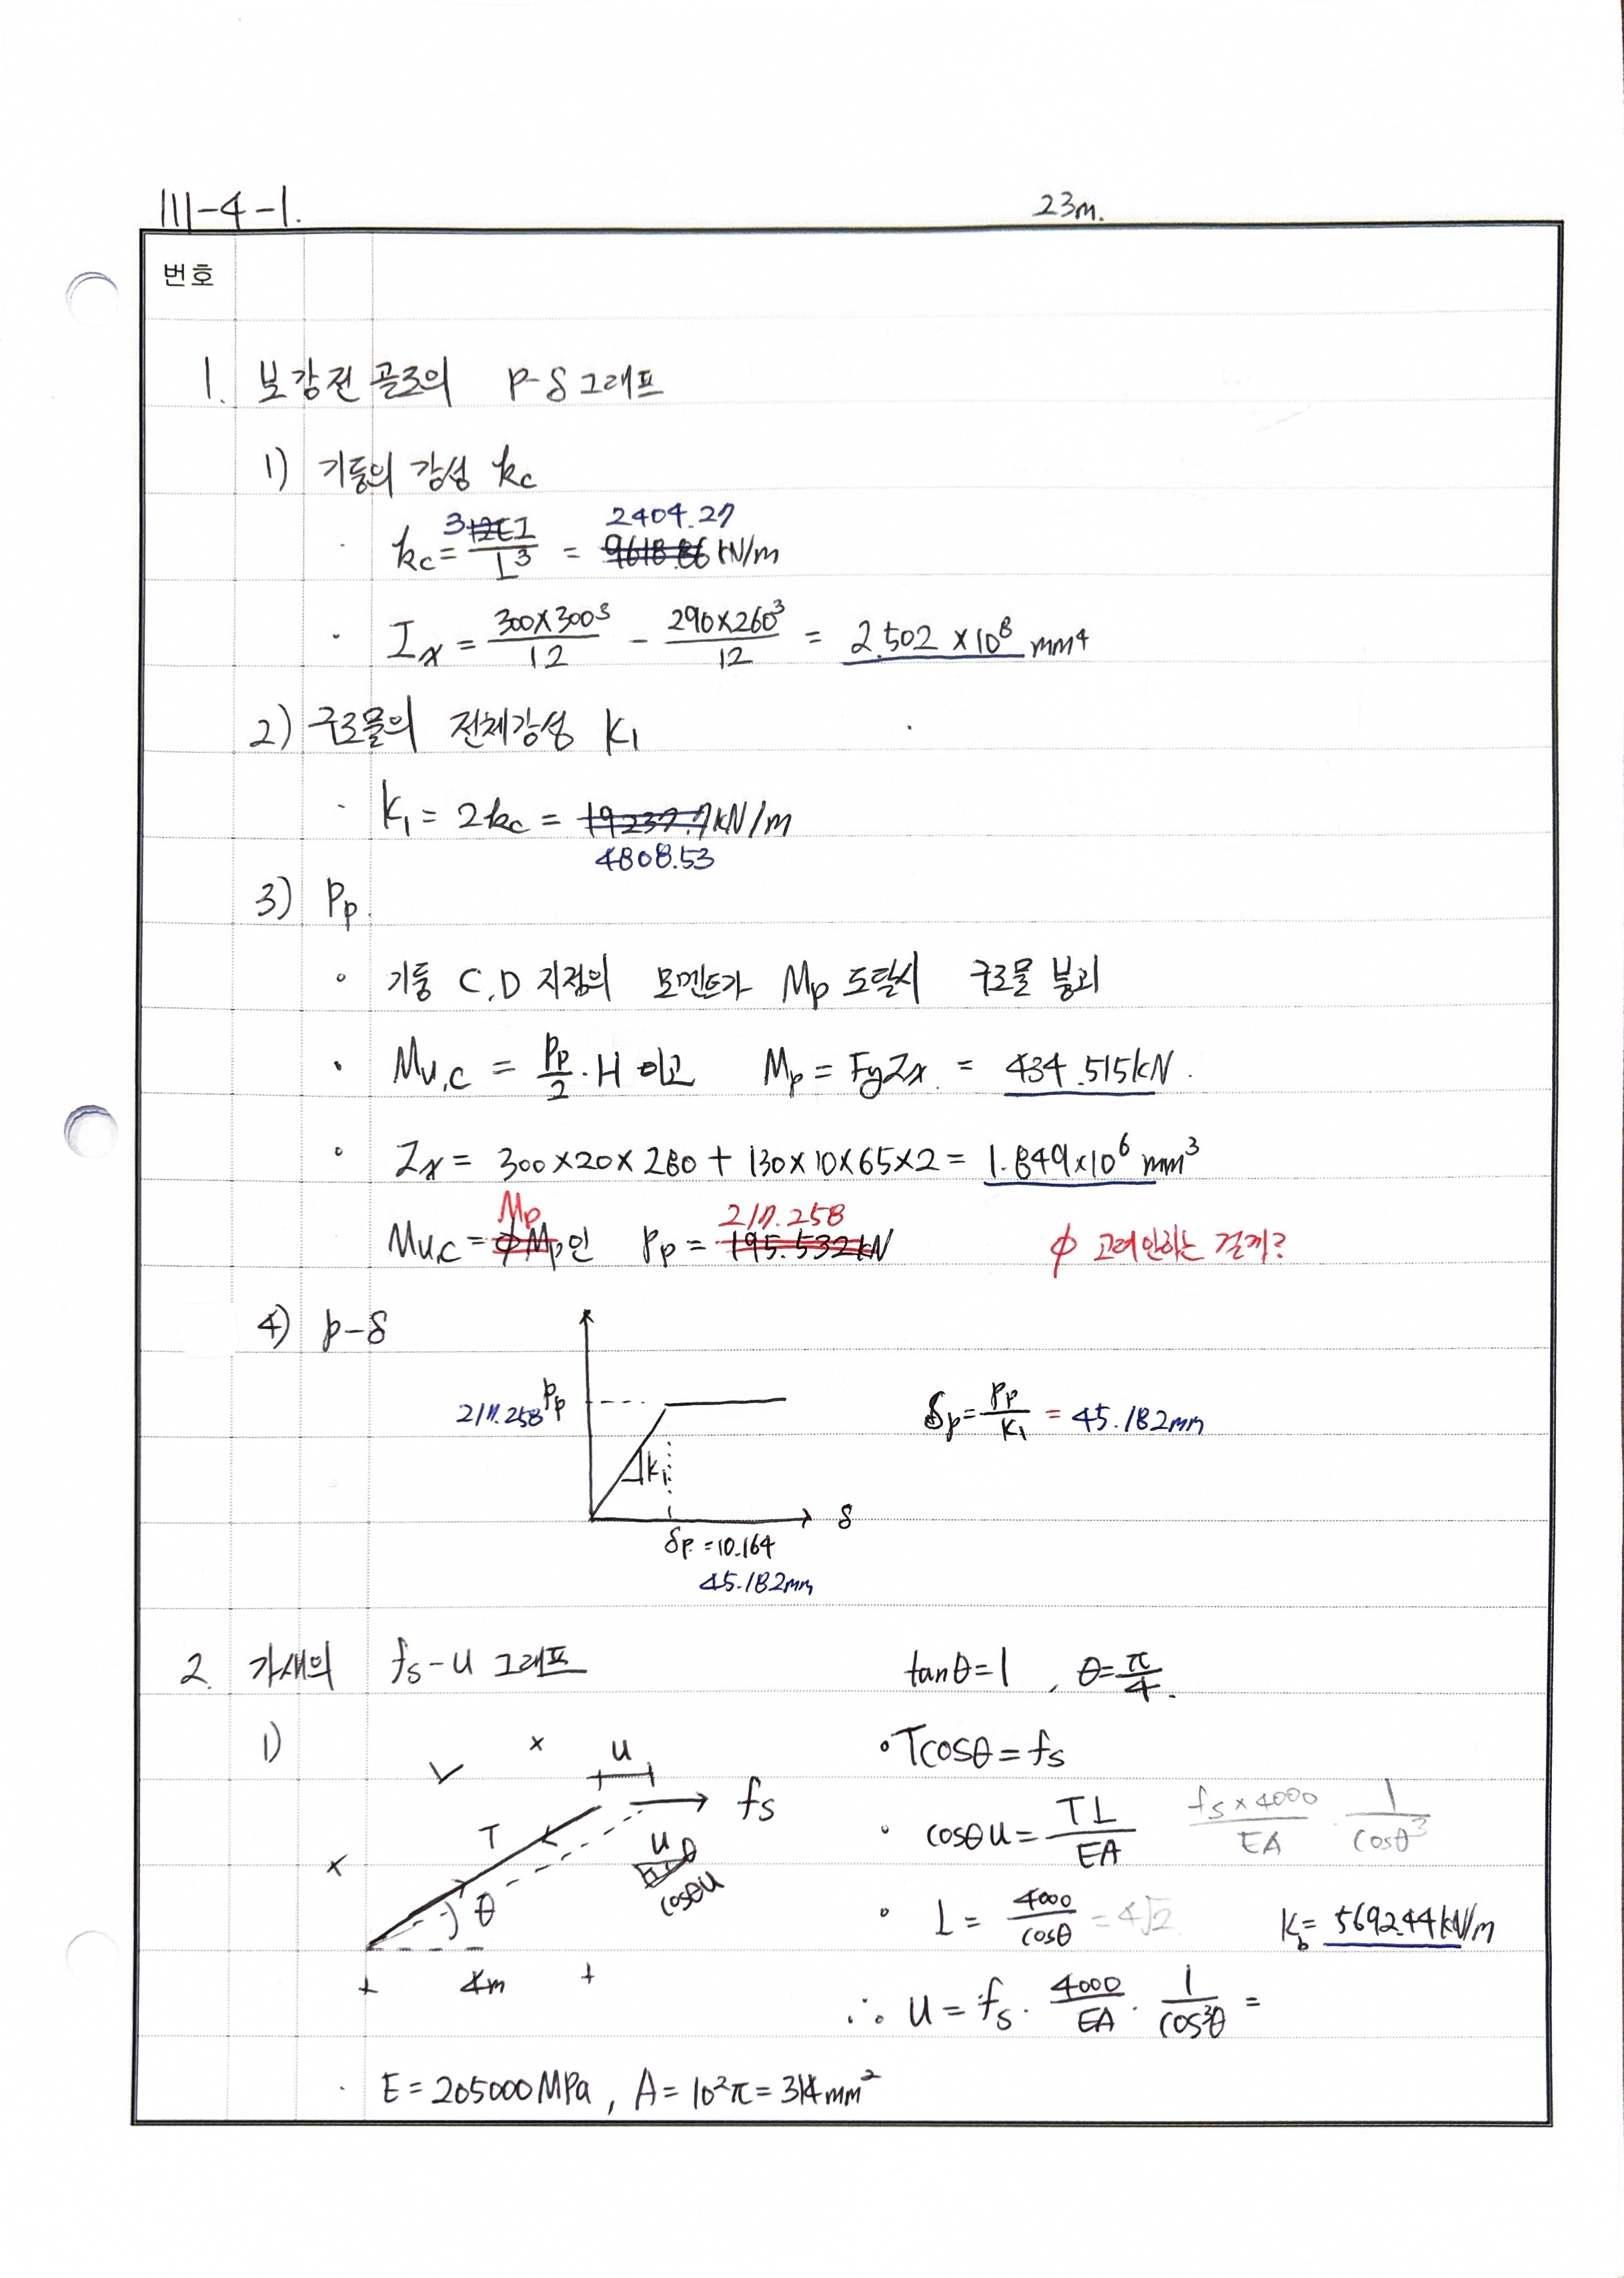 III-4-1.
23m.
번호
1. 보강전 골조의 P-δ 그래프
1) 기둥의 강성 kc
2404.27
· kc = 3 12EI/L³ = 9618.86 kN/m
· Ix = 300×300³/12 - 290×260³/12 = 2.502 ×10⁸ mm⁴
2) 구조물의 전체강성 K₁
· K₁ = 2kc = 19237.7 kN/m
4808.53
3) Pp.
· 기둥 C,D 지점의 모멘트가 Mp 도달시 구조물 붕괴
· Mu,c = Pp/2 · H 이고 Mp = FyZx = 434.515kN.
· Zx = 300×20×280 + 130×10×65×2 = 1.849×10⁶ mm³
Mp 217.258
Mu,c = φMp인 Pp = 195.532kN φ 고려안하는 걸까?
4) p-δ
217.258 Pp
δp = Pp/K₁ = 45.182mm
K₁
δ
δp = 10.164
45.182mm
2. 가새의 fs-u 그래프 tanθ=1 , θ=π/4.
1)
u
fs
T
θ
4m
u θ
cosθu
· Tcosθ = fs
· cosθu = TL/EA fs×4000/EA · 1/cosθ³
· L = 4000/cosθ = 4√2 Kb = 5692.44kN/m
∴ u = fs · 4000/EA · 1/cos³θ =
· E = 205000MPa , A = 10²π = 314mm²